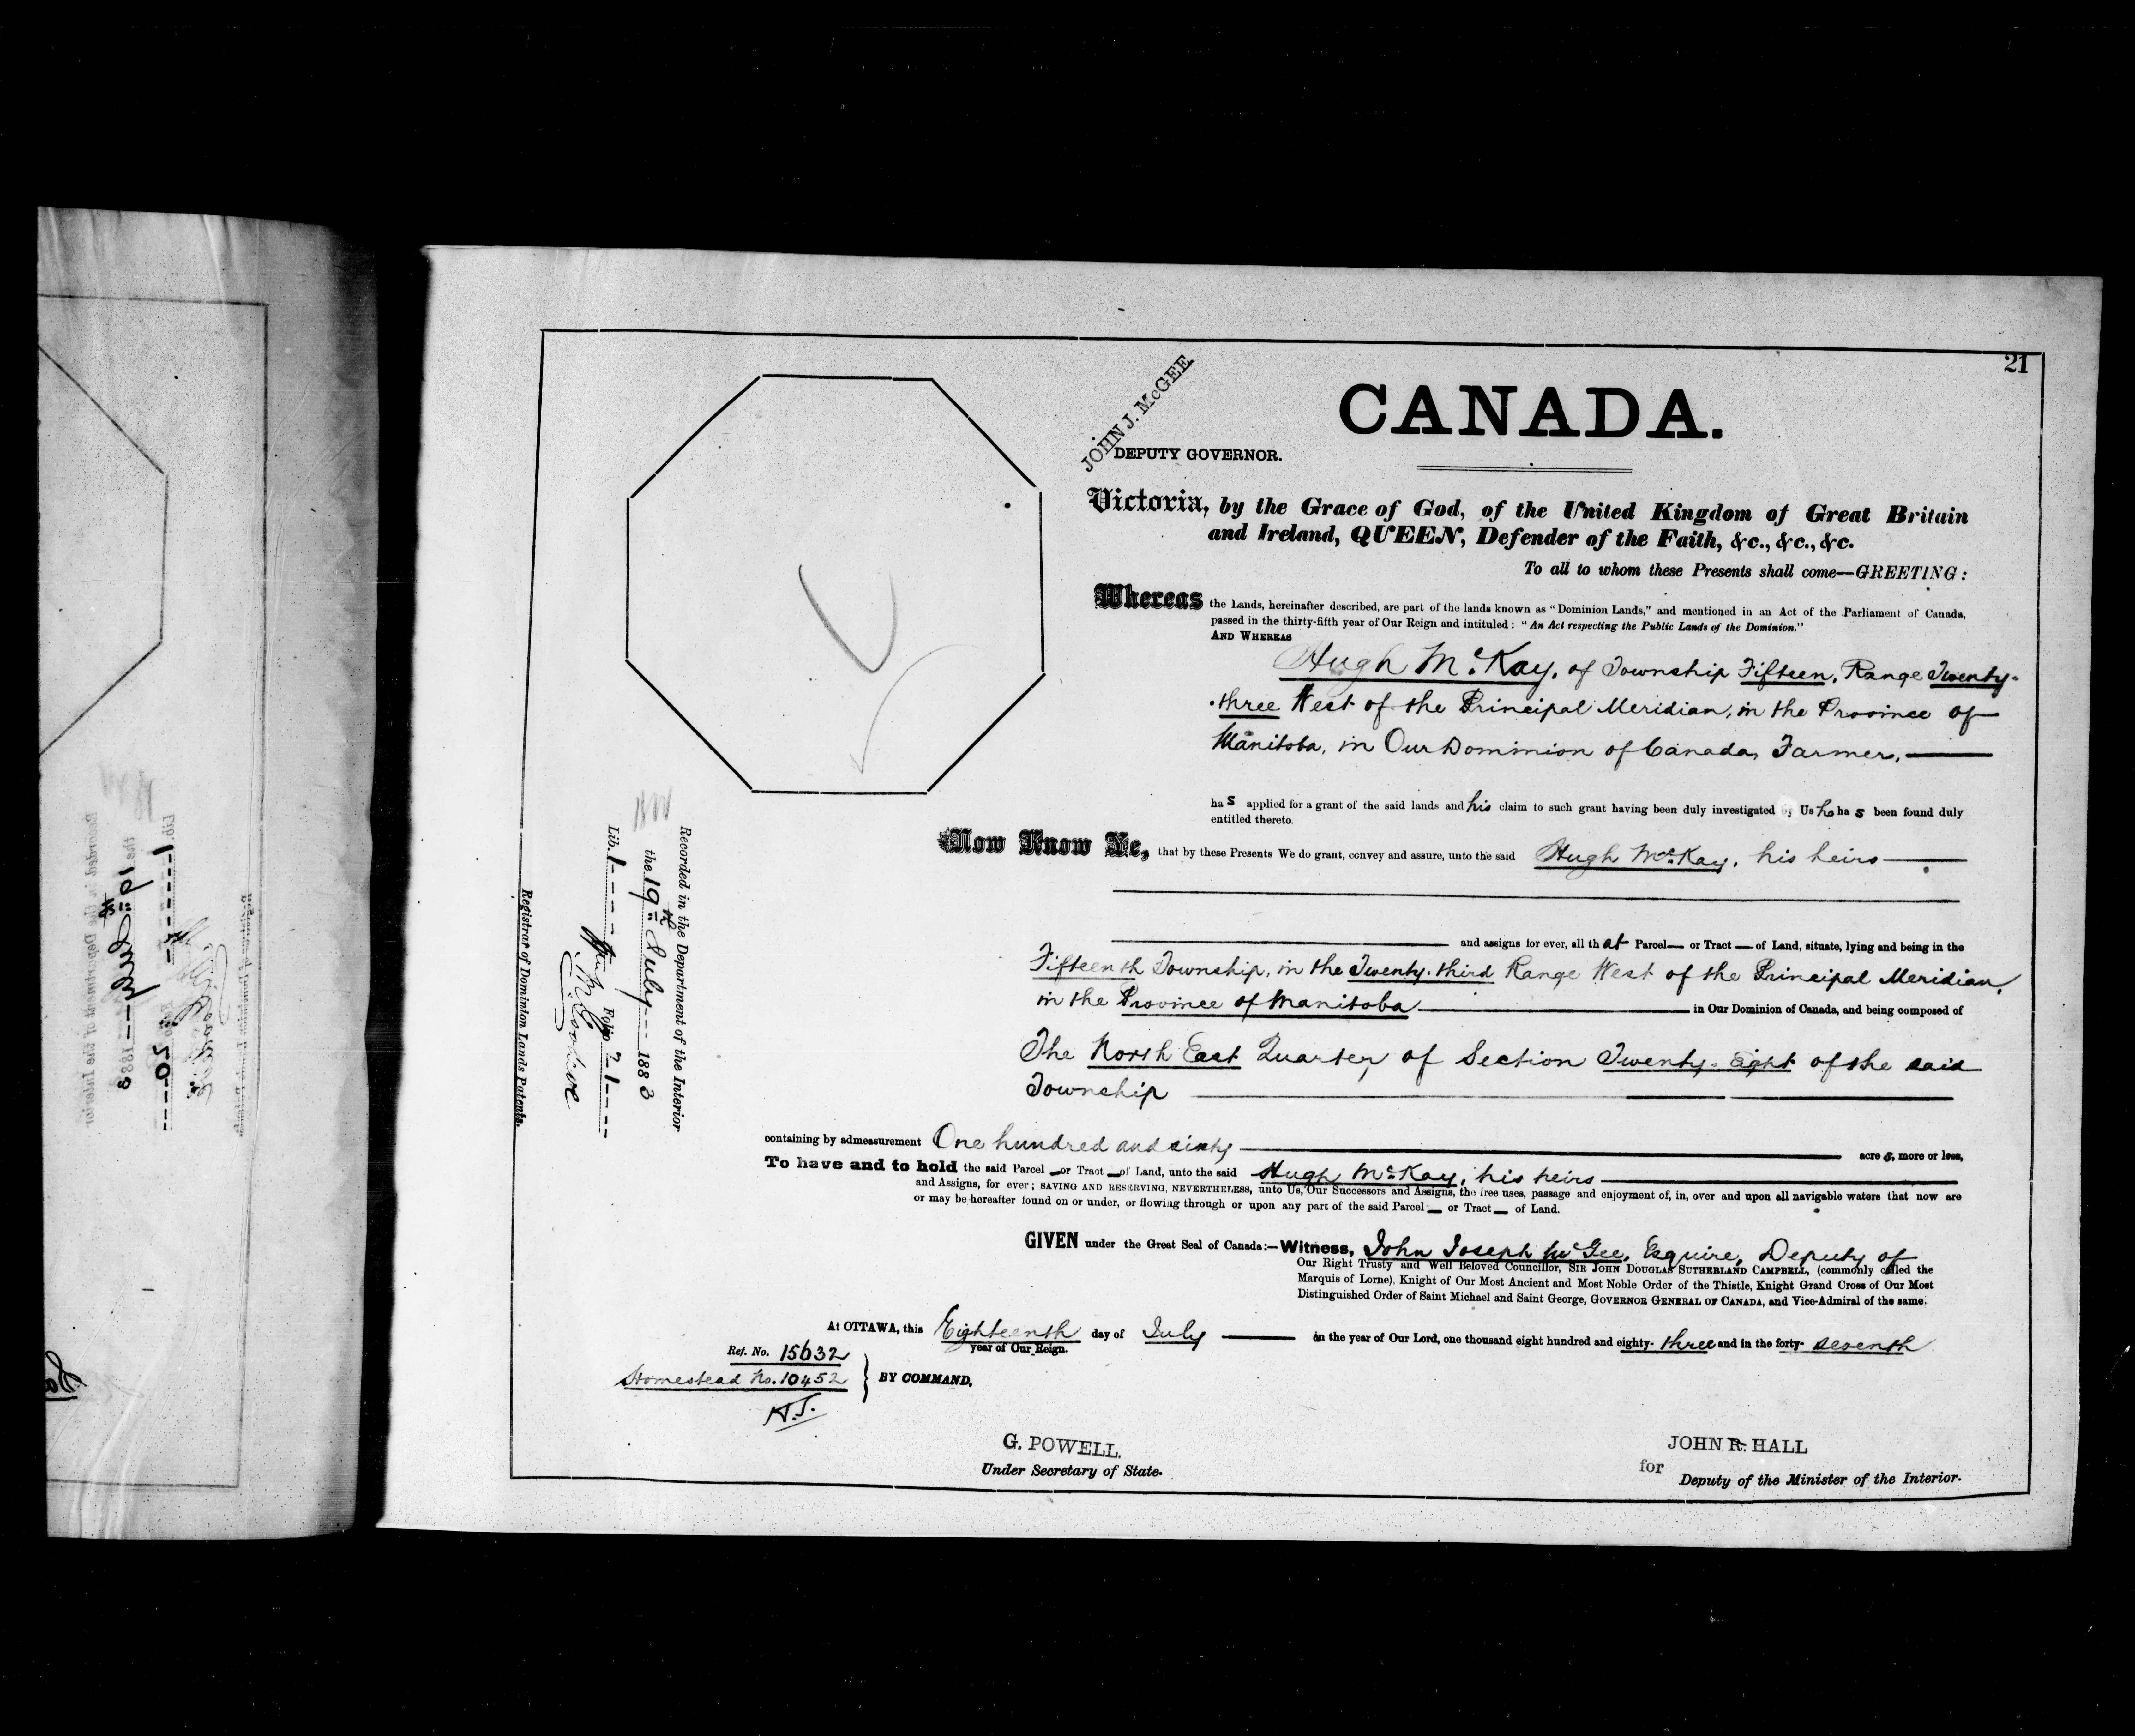 21
CANADA.
JOHN J. McGEE
DEPUTY GOVERNOR.
Victoria, by the Grace of God, of the United Kingdom of Great Britain
and Ireland, QUEEN, Defender of the Faith, &c., &c., &c.
To all to whom these Presents shall come—GREETING:
Whereas the Lands, hereinafter described, are part of the lands known as "Dominion Lands," and mentioned in an Act of the Parliament of Canada,
passed in the thirty-fifth year of Our Reign and intituled: "An Act respecting the Public Lands of the Dominion."
AND WHEREAS
Hugh McKay, of Township Fifteen, Range Twenty-
-three West of the Principal Meridian, in the Province of
Manitoba, in Our Dominion of Canada, Farmer,
has applied for a grant of the said lands and his claim to such grant having been duly investigated by Us he has been found duly
entitled thereto.
Now Know Ye, that by these Presents We do grant, convey and assure, unto the said Hugh McKay, his heirs
and assigns for ever, all that Parcel— or Tract — of Land, situate, lying and being in the
Fifteenth Township, in the Twenty-third Range West of the Principal Meridian,
in the Province of Manitoba in Our Dominion of Canada, and being composed of
The North East Quarter of Section Twenty-Eight of the said
Township
containing by admeasurement One hundred and sixty acres, more or less,
To have and to hold the said Parcel — or Tract — of Land, unto the said Hugh McKay, his heirs
and Assigns, for ever; SAVING AND RESERVING, NEVERTHELESS, unto Us, Our Successors and Assigns, the free uses, passage and enjoyment of, in, over and upon all navigable waters that now are
or may be hereafter found on or under, or flowing through or upon any part of the said Parcel — or Tract — of Land.
GIVEN under the Great Seal of Canada:—Witness, John Joseph McGee, Esquire, Deputy of
Our Right Trusty and Well Beloved Councillor, SIR JOHN DOUGLAS SUTHERLAND CAMPBELL, (commonly called the
Marquis of Lorne), Knight of Our Most Ancient and Most Noble Order of the Thistle, Knight Grand Cross of Our Most
Distinguished Order of Saint Michael and Saint George, GOVERNOR GENERAL OF CANADA, and Vice-Admiral of the same.
At OTTAWA, this Eighteenth day of July in the year of Our Lord, one thousand eight hundred and eighty-three and in the forty-seventh
year of Our Reign.
Ref. No. 15632
Homestead No. 10452
BY COMMAND,
H.J.
G. POWELL.
Under Secretary of State.
JOHN R. HALL
for
Deputy of the Minister of the Interior.
Recorded in the Department of the Interior
the 19th July 1883
Lib. 1 Folio 21
Registrar of Dominion Lands Patents.